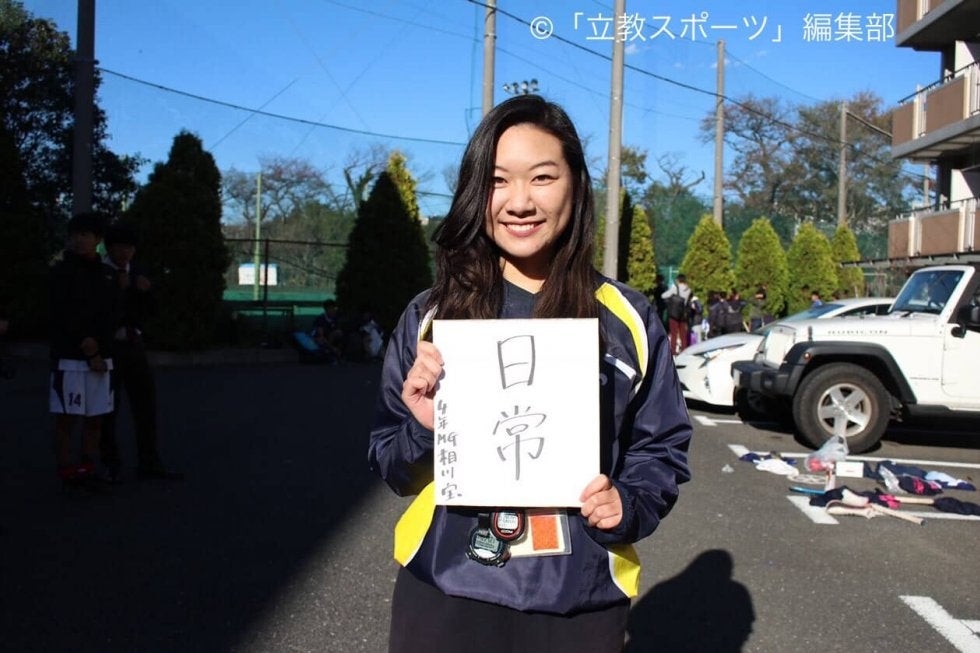 ©「立教スポーツ」編集部
日常
4年MG 相川 宝
14
RUBICON